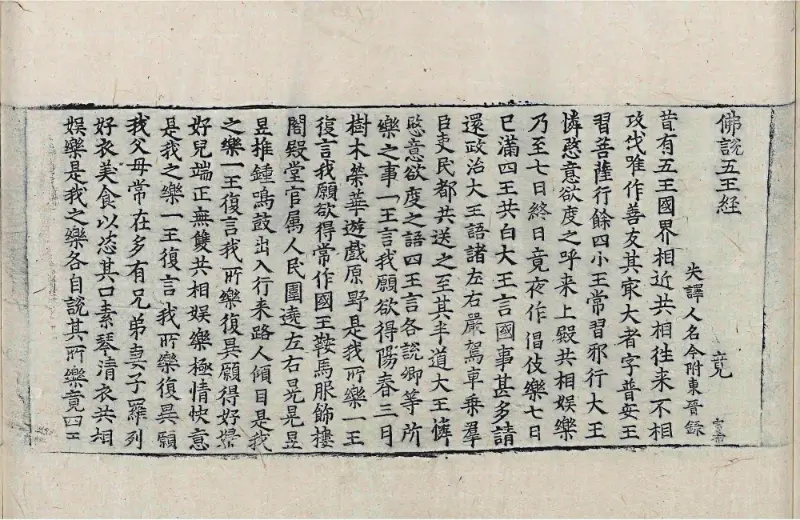 佛説五王経
失譯人名今附東晉錄 竟
昔有五王國界相近共相往来不相
攻伐唯作善友其冣大者字普安王
習菩薩行餘四小王常習邪行大王
憐愍意欲度之呼来上殿共相娱樂
乃至七日終日竟夜作倡伎樂七日
已滿四王共白大王言國事甚多請
還政治大王語諸左右嚴駕車乘羣
臣吏民都共送之至其半道大王憐
愍意欲度之語四王言各説卿等所
樂之事一王言我願欲得陽春三月
樹木榮華遊戲原野是我所樂一王
復言我願欲得常作國王鞍馬服飾樓
閣殿堂官属人民圍遶左右晃晃昱
昱推鍾鳴鼓出入行来路人傾目是我
之樂一王復言我所樂復異願得好婦
好兒端正無雙共相娱樂極情快意
是我之樂一王復言我所樂復異願
我父母常在多有兄弟妻子羅列
好衣美食以恣其口素琴清衣共相
娱樂是我之樂各自説其所樂竟四王